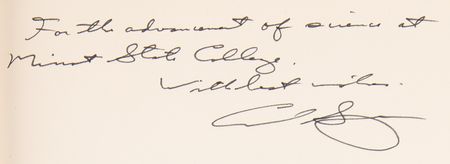 For the advancement of science at
Minot State College.
With best wishes.